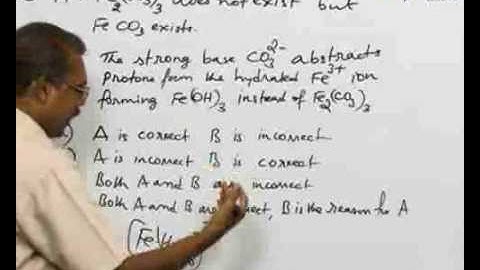 does not exist but
FeCO3 exists.
The strong base CO3^2- abstracts
Protons from the hydrated Fe^3+ ion
forming Fe(OH)3 instead of Fe2(CO3)3
A is correct B is incorrect
A is incorrect B is correct
Both A and B are incorrect
Both A and B are correct, B is the reason for A